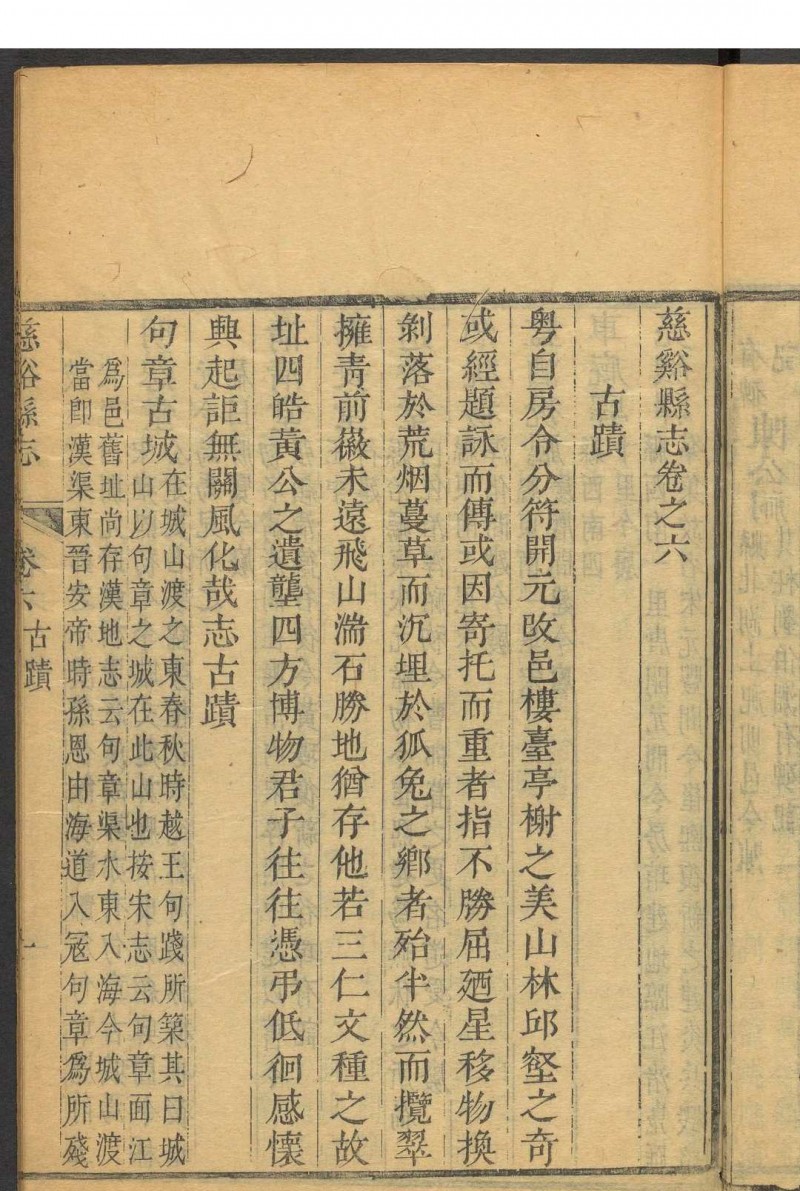 慈谿縣志卷之六
古蹟
粤自房令分符開元改邑樓臺亭榭之美山林邱壑之奇
或經題詠而傳或因寄托而重者指不勝屈廼星移物換
剝落於荒烟蔓草而沉埋於狐兔之鄉者殆半然而攬翠
擁青前徽未遠飛山湍石勝地猶存他若三仁文種之故
址四皓黃公之遺壟四方博物君子往往憑弔低徊感懷
興起詎無關風化哉志古蹟
句章古城
在城山渡之東春秋時越王句踐所築其曰城
山以句章之城在此山也按宋志云句章面江
為邑舊址尚存漢地志云句章渠水東入海今城山渡
當卽漢渠東晉安帝時孫恩由海道入寇句章爲所殘
慈谿縣志
卷六
古蹟
一